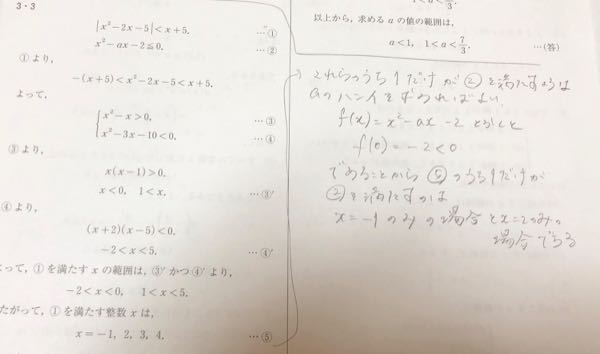 3・3
|x²−2x−5|<x+5. …①
x²−ax−2≦0. …②
①より,
−(x+5)<x²−2x−5<x+5.
よって,
x²−x>0, …③
x²−3x−10<0. …④
③より,
x(x−1)>0.
x<0, 1<x. …③′
④より,
(x+2)(x−5)<0.
−2<x<5. …④′
って, ①を満たす x の範囲は, ③′かつ④′より,
−2<x<0, 1<x<5.
たがって, ①を満たす整数 x は,
x=−1, 2, 3, 4. …⑤
以上から, 求める a の値の範囲は,
a<1, 1<a<7/3. …(答)
これらのうち1だけが②を満たすような
aのハンイを求めればよい
f(x)=x²−ax−2とおくと
f(0)=−2<0
であることから⑤のうち1だけが
②を満たすのは
x=−1のみの場合とx=2のみの
場合である